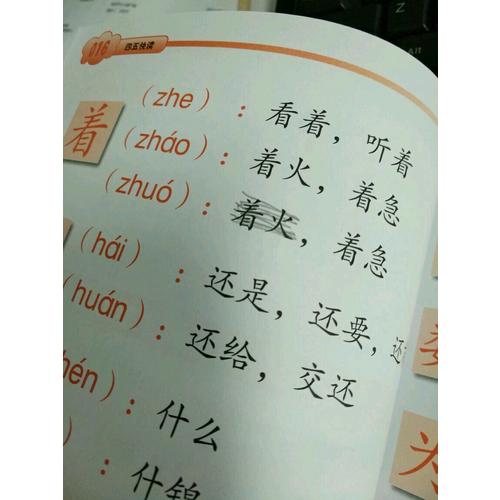 016 四五快读
着 (zhe)：看着，听着
(zháo)：着火，着急
(zhuó)：着火，着急
(hái)：还是，还要，还
(huán)：还给，交还
hén)：什么
)：什锦
Alt